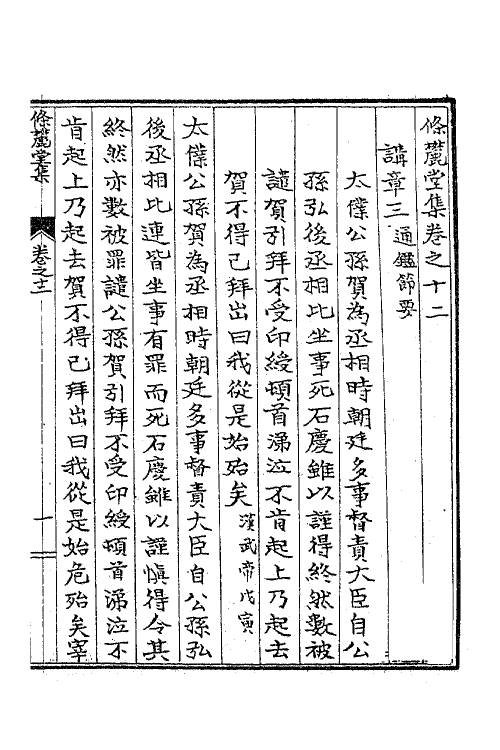 條麓堂集卷之十二
講章三 通鑑節要
太僕公孫賀為丞相時朝廷多事督責大臣自公
孫弘後丞相比坐事死石慶雖以謹得終然數被
譴賀引拜不受印綬頓首涕泣不肯起上乃起去
賀不得已拜出曰我從是始殆矣 漢武帝戊寅
太僕公孫賀為丞相時朝廷多事督責大臣自公孫弘
後丞相比連皆坐事有罪而死石慶雖以謹慎得令其
終然亦數被罪譴公孫賀引拜不受印綬頓首涕泣不
肯起上乃起去賀不得已拜出曰我從是始危殆矣宰
條麓堂集 卷之十二 一